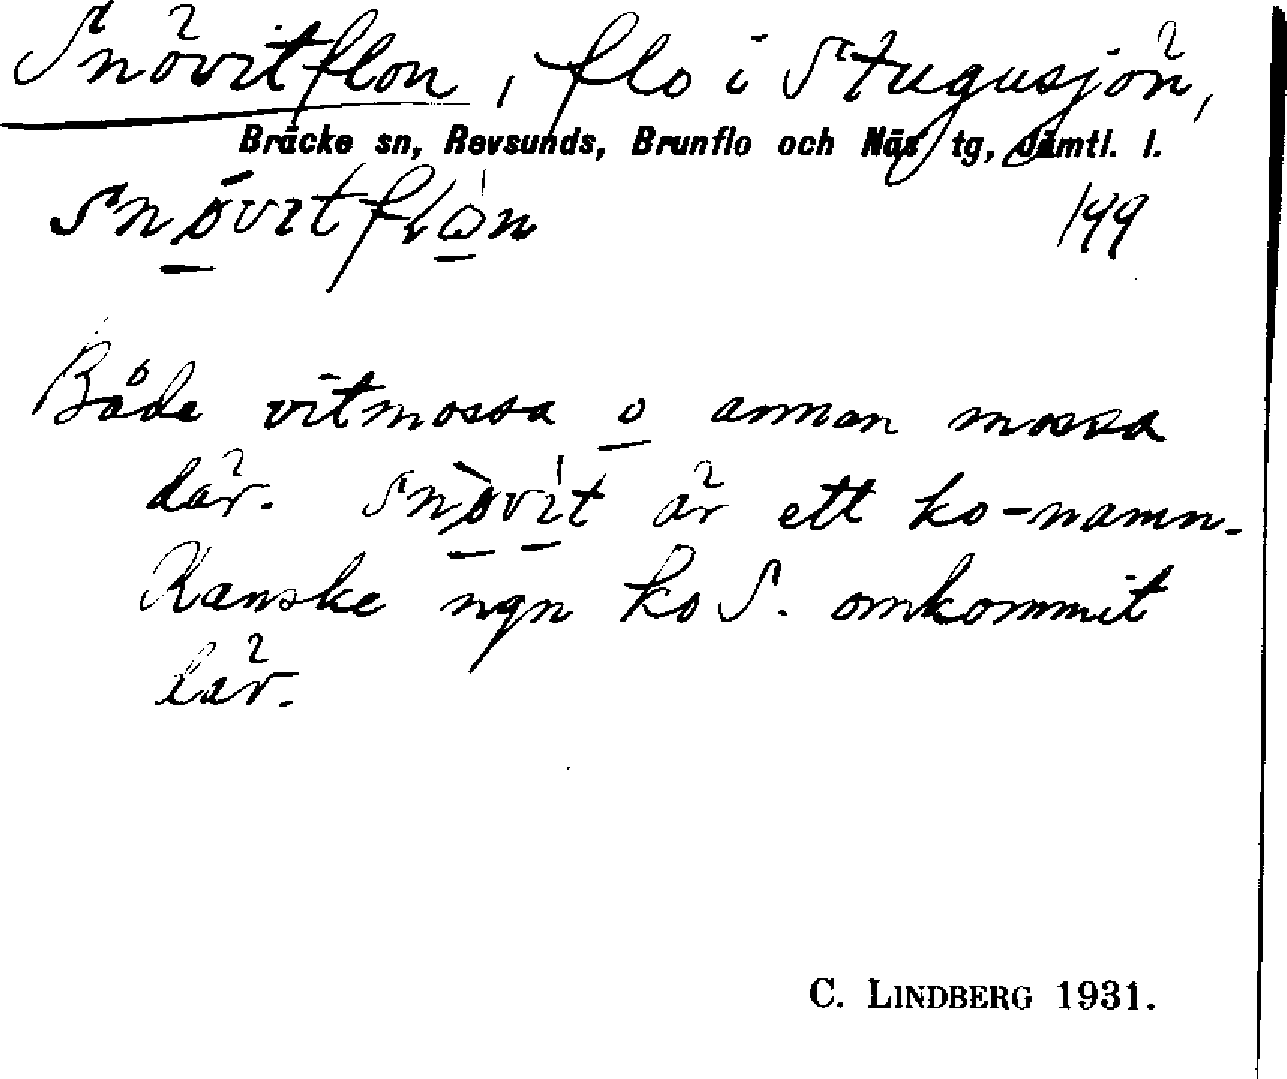 Snövitflon, flo i Stugusjön,
Bräcke sn, Revsunds, Brunflo och Näs tg, Jämtl. l.
snøvıtflòn
199
Både vitmossa o annan mossa
där. Snøvıt är ett ko-namn.
Kanske ngn ko S. omkommit
där.
C. LINDBERG 1931.